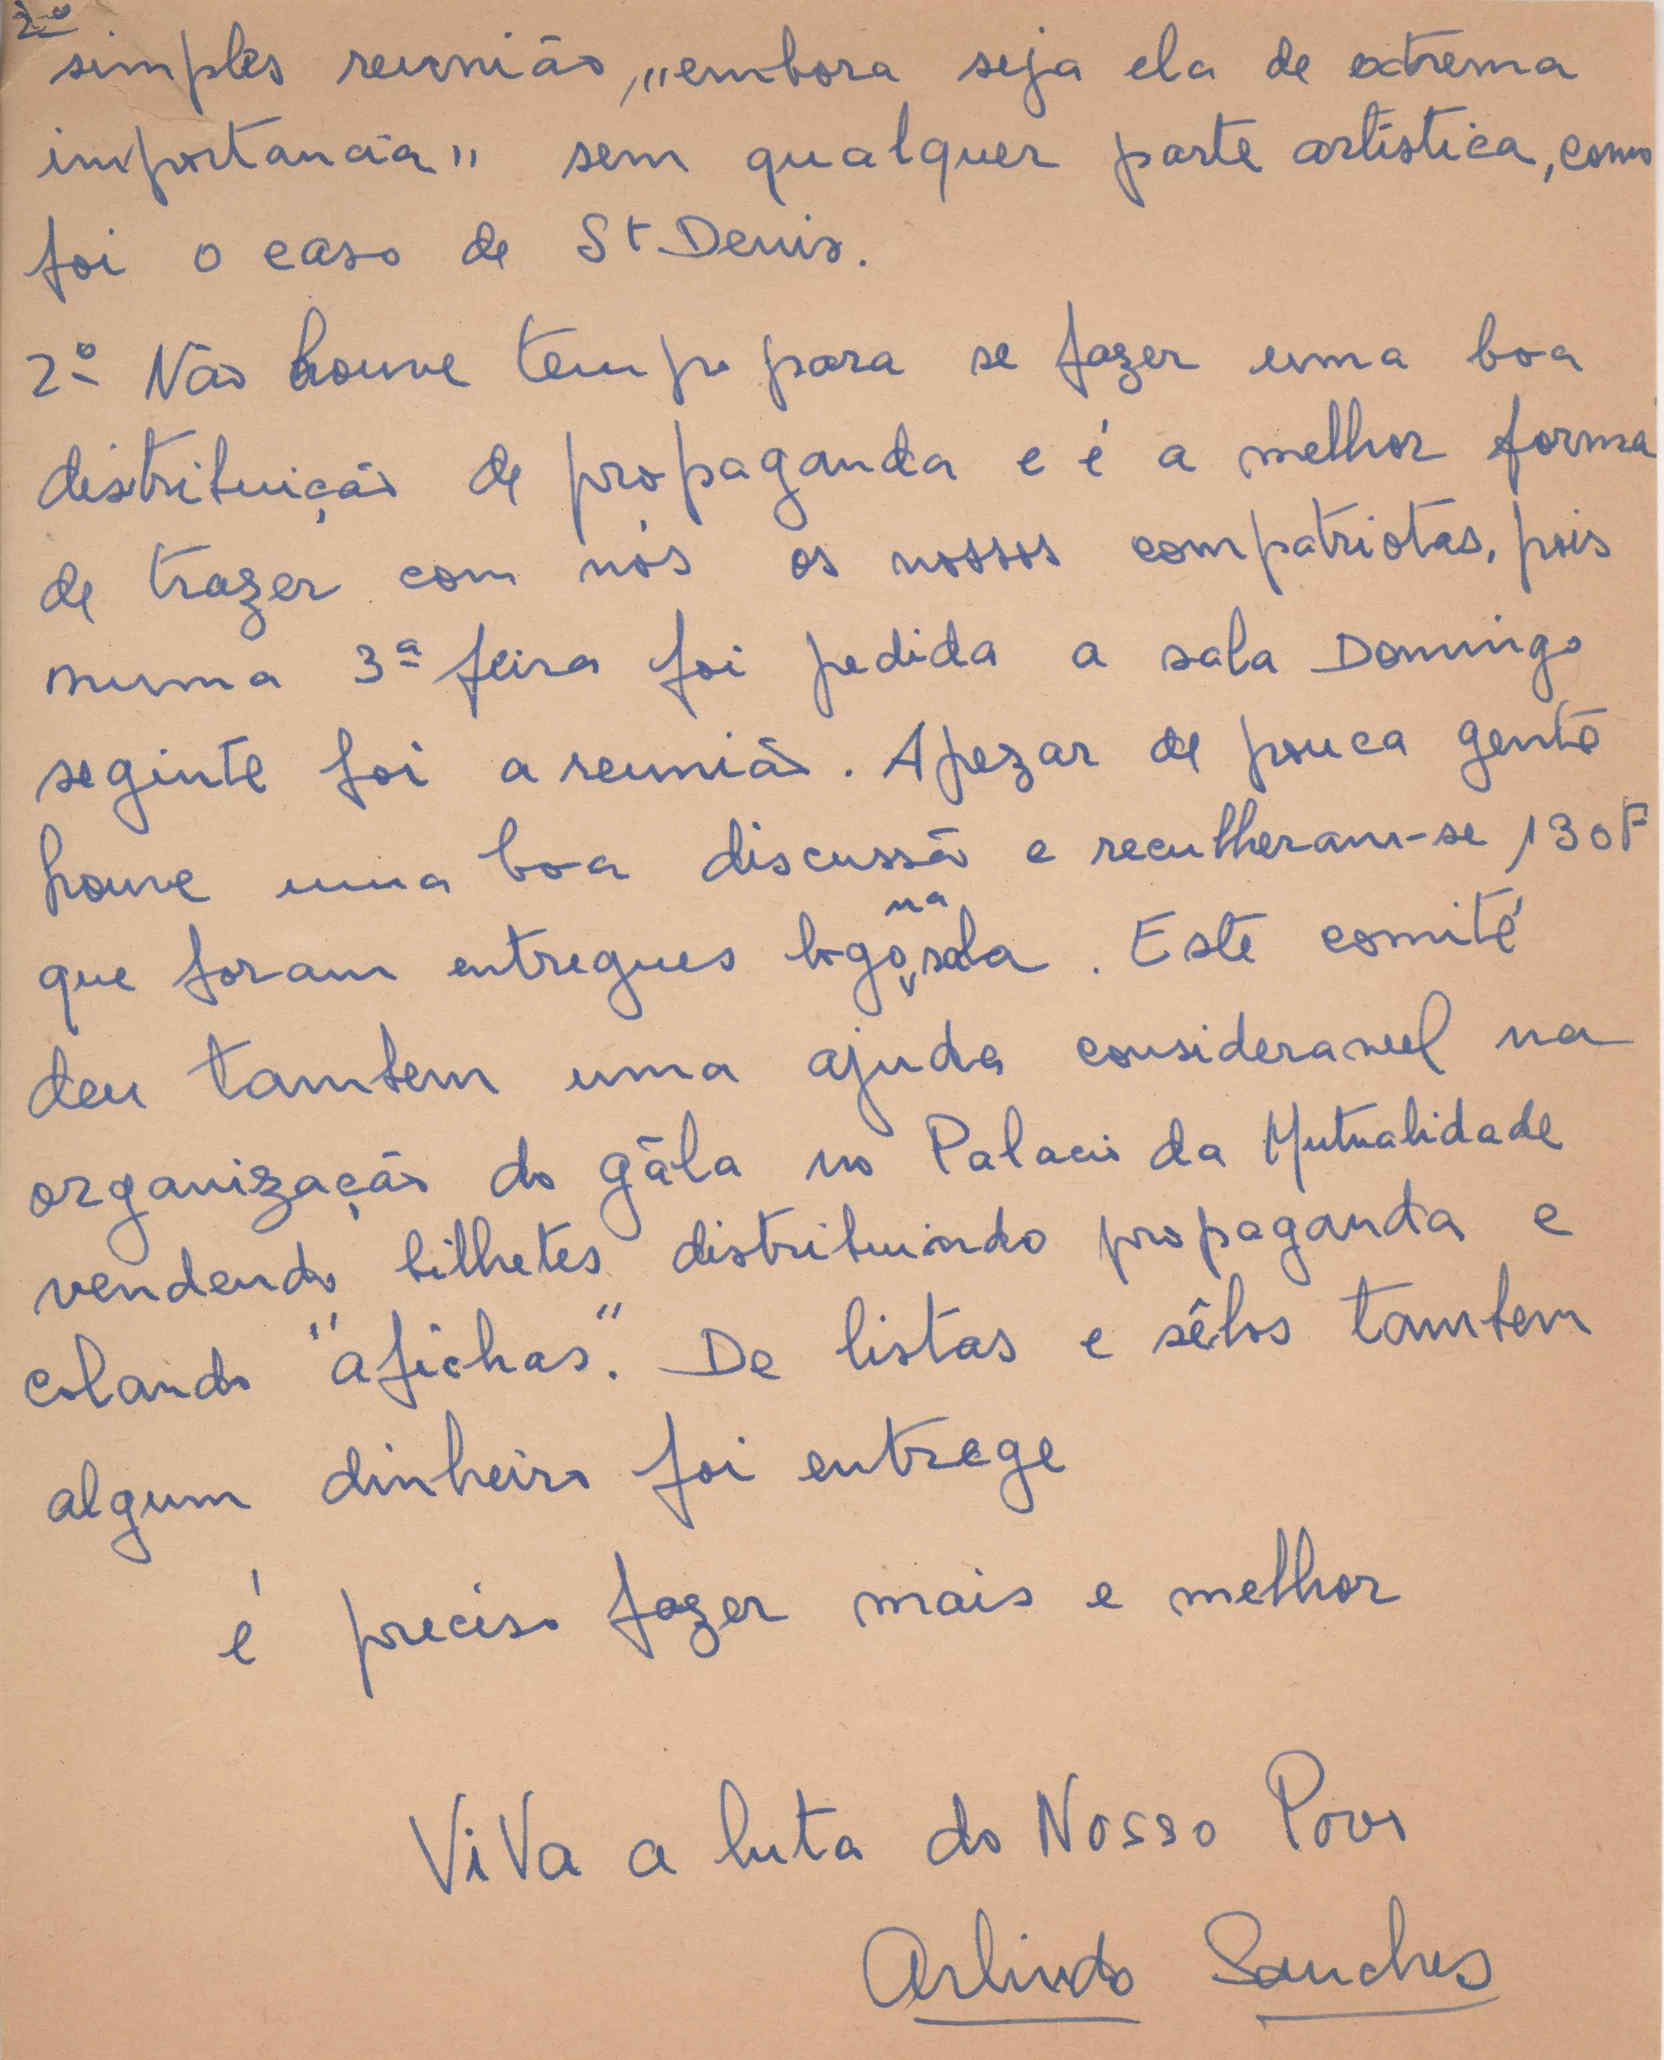 2º
simples reunião, "embora seja ela de extrema
importancia" sem qualquer parte artistica, como
foi o caso de St Denis.
2º Não houve tempo para se fazer uma boa
distribuição de propaganda e é a melhor forma
de trazer com nós os nossos compatriotas, pois
numa 3ª feira foi pedida a sala Domingo
seginte foi a reunião. Apezar de pouca gente
houve uma boa discussão e reculheram-se 130F
que foram entregues logo na sala. Este comité
deu tambem uma ajuda consideravel na
organização do gála no Palacio da Mutualidade
vendendo bilhetes distribuindo propaganda e
colando "afichas". De listas e sêlos tambem
algum dinheiro foi entrege
é preciso fazer mais e melhor
ViVa a luta do Nosso Povo
Arlindo Sanches